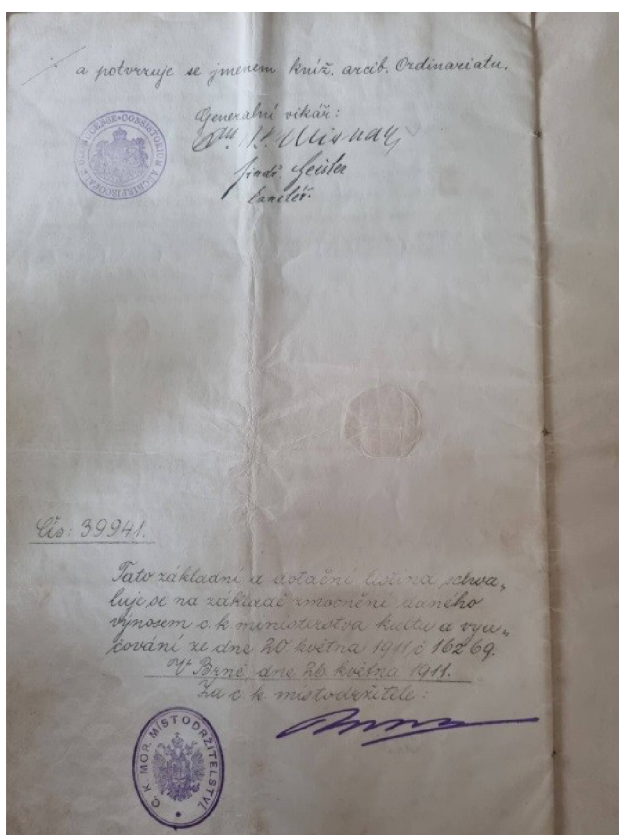 a potvrzuje se jmenem kníž. arcib. Ordinariatu.
Generalní vikář:
kancléř.
Čís: 39941.
Tato základní a dotační listina schva„
luje se na základě zmocnění daného
výnosem c. k. ministerstva kultu a vyu„
čování ze dne 20. května 1911, č 16269.
V Brně, dne 26. května 1911.
Za c. k. místodržitele:
C. K. MOR. MÍSTODRŽITELSTVÍ.